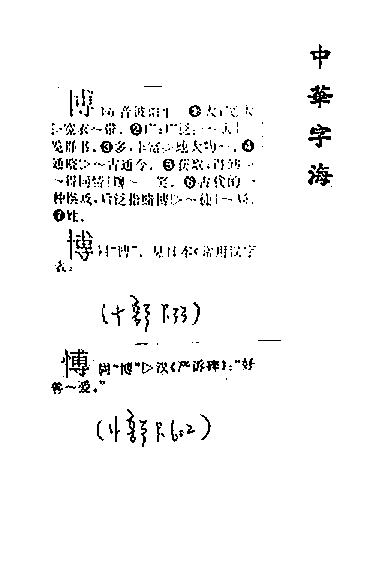 中華字海
博 bó 音波阳平 ❶大；
▷宽衣～带。❷广；广泛：
览群书。❸多，丰富▷地大物～。❹
通晓▷～古通今。❺获取；
～得同情｜ 笑。❻古代的一
种棋戏，后泛指赌博▷～徒｜～局。
❼姓。
同“博”。见日本《常用汉字
表》
(十部 P.33)
愽 同“博”▷汉《严䜣碑》：“好
善～爱。”
(忄部 P.602)